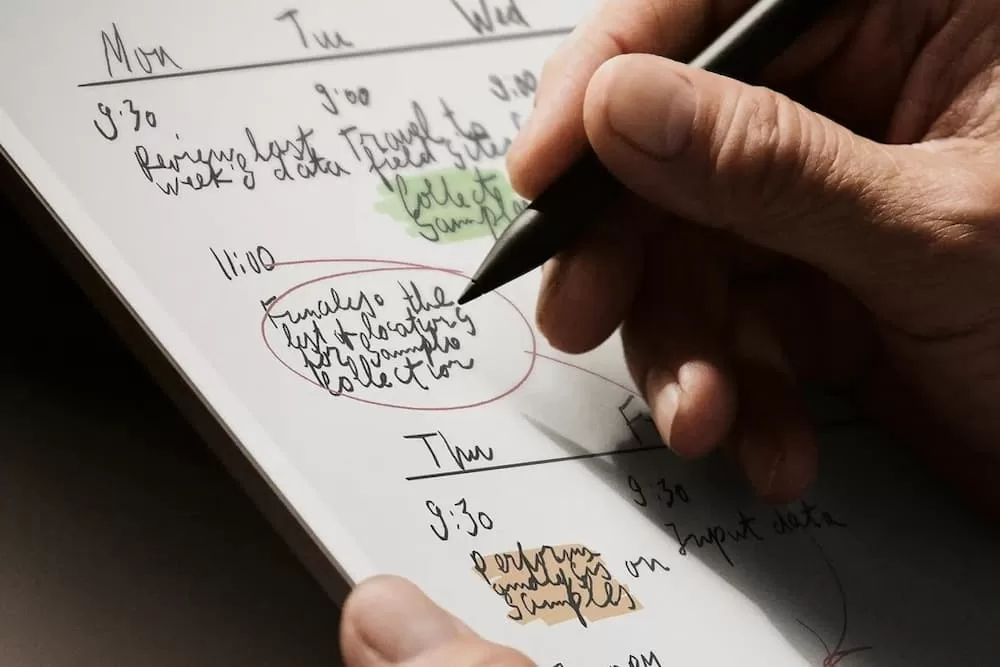 Mon Tue Wed
9:30 9:00 9:00
Review last
week's data
Travel to
field sites
Collect
samples
11:00
Finalise the
list of locations
for sample
collection
Thu
9:30 9:30
Input data
Perform
analysis on
samples